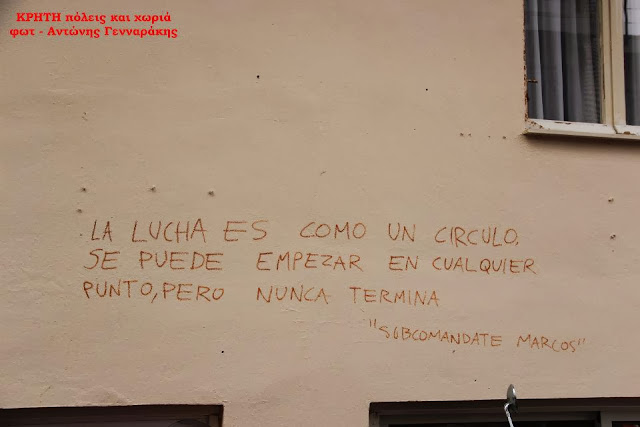 ΚΡΗΤΗ πόλεις και χωριά
φωτ - Αντώνης Γενναράκης
LA LUCHA ES COMO UN CIRCULO.
SE PUEDE EMPEZAR EN CUALQUIER
PUNTO, PERO NUNCA TERMINA
"SUBCOMANDATE MARCOS"